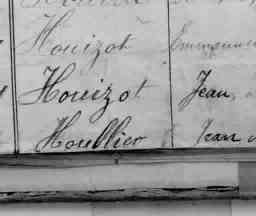 Houizot Emmanuel
Houizot Jean
Houllier Jean